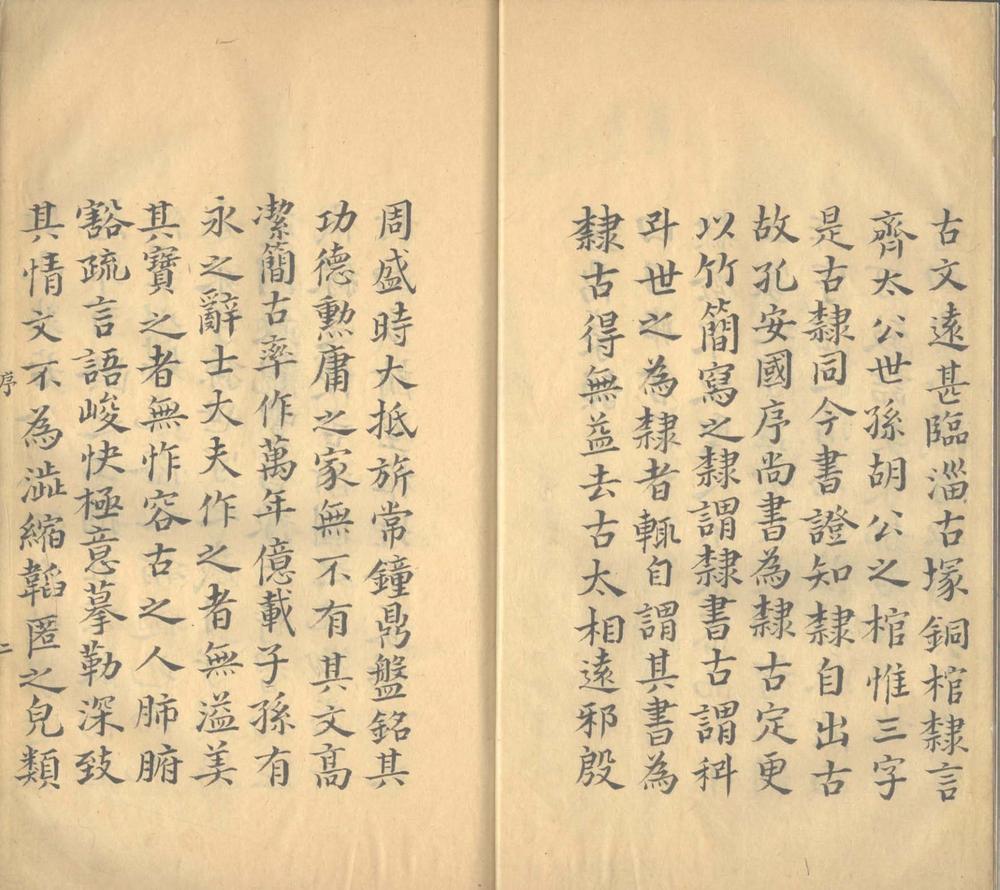 古文遠甚臨淄古塚銅棺隸言
齊太公世孫胡公之棺惟三字
是古隸同今書證知隸自出古
故孔安國序尚書為隸古定更
以竹簡寫之隸謂隸書古謂科
斗世之為隸者輒自謂其書為
隸古得無益去古太相遠邪殷
周盛時大抵旂常鐘鼎盤銘其
功德勲庸之家無不有其文高
潔簡古率作萬年億載子孫有
永之辭士大夫作之者無溢美
其寶之者無怍容古之人肺腑
豁疏言語峻快極意摹勒深致
其情文不為澁縮韜匿之皃類
序
二